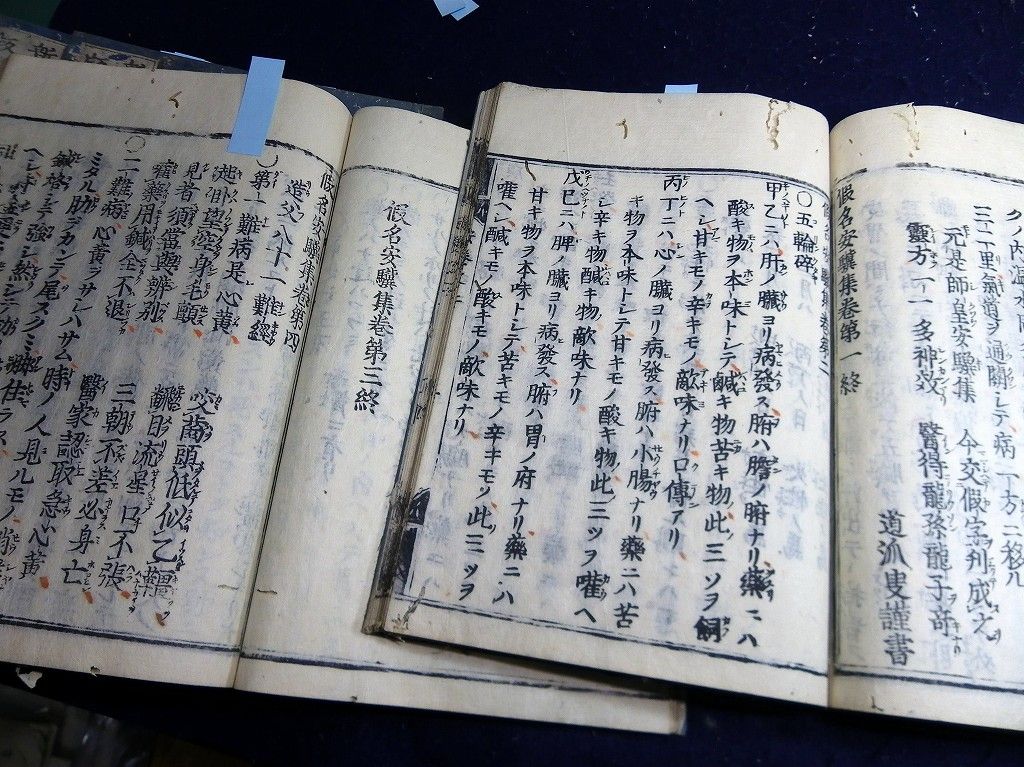 三二丁里氣道ヲ通關シテ病一丁方二移ル
元是師皇安驥集 今交假字判成之
靈方一一多神效 醫得龍孫龍子奇
道派叟謹書
假名安驥集卷第一終
〇五輪碎
甲乙ニハ肝ノ臟ヨリ病發ス腑ハ膽ノ腑ナリ藥ニハ
酸キ物ヲ本味トシテ鹹キ物苦キ物此三ツヲ飼
ヘシ甘キモノ辛キモノ敵味ナリ口傳アリ
丙丁ニハ心ノ臟ヨリ病發ス腑ハ小腸ナリ藥ニハ苦
キ物ヲ本味トシテ甘キモノ酸キ物此三ツヲ嚾ヘ
シ辛キ物鹹キ物敵味ナリ
戊巳ニハ脾ノ臟ヨリ病發ス腑ハ胃ノ府ナリ藥ニハ
甘キ物ヲ本味トシテ苦キモノ辛キモノ此三ツヲ
嚾ヘシ鹹キモノ酸キモノ敵味ナリ
假名安驥集卷第三終
假名安驥集卷第四
造父八十一難經
第一難病是心黃 咬齒頭低似乙
起臥望空身毛顫 翻目流涎口不張
見者須當與辨別 三朝不差必身亡
藥用鍼全不退 醫家認取急心黃
〇二難病心黃テサンハサム時ノ人見ルモノ